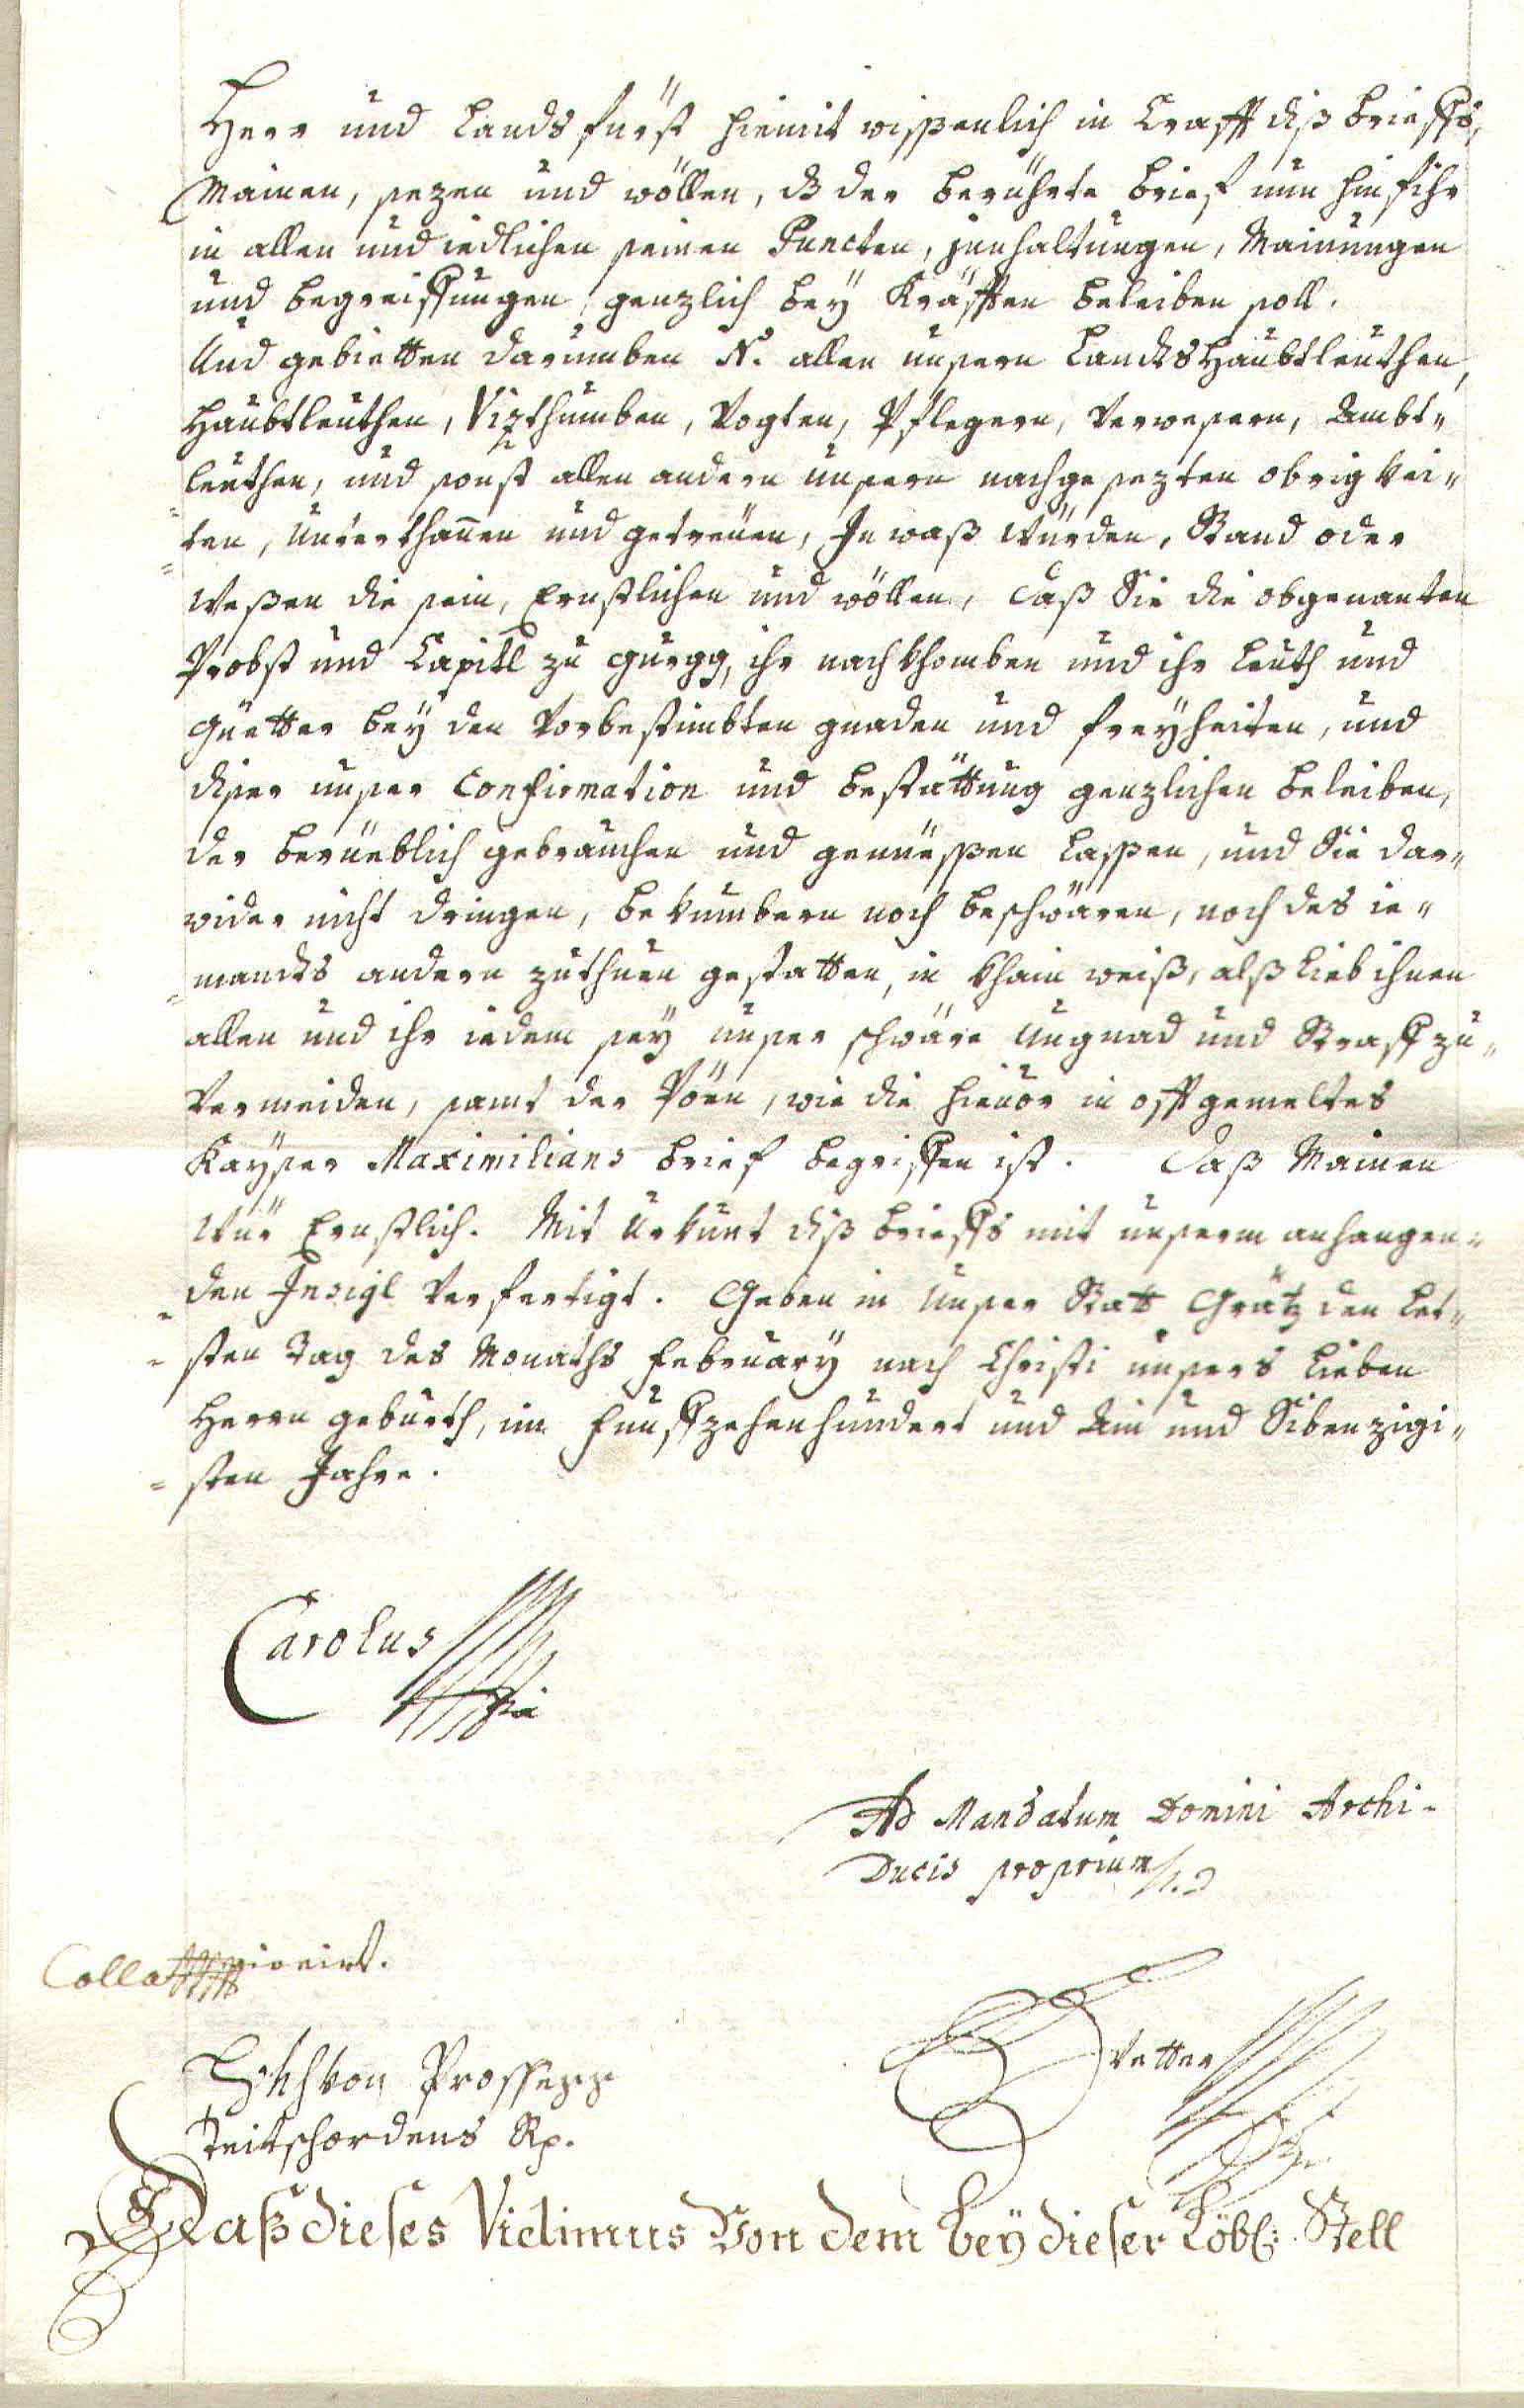 Herr und Landsfürst hiemit wißenlich in Crafft diß brieffs,
Mainen, sezen und wöllen, dz der berührte brief nun hinfihr
in allen und iedlichen seinen Puncten, jnnhaltungen, Mainungen
und begreiffungen genzlich bey Kräfften beleiben soll.
Und gebietten darumben N. allen unsern Landtshaubtleuthen,
Haubtleuthen, Vizthumben, Vogten, Pflegern, Verwesern, Ambt„
leuthen, und sonst allen andern unsern nachgesezten obrigkei„
„ten, Unterthannen und getreuen, In waß würden, Stand oder
Weßen die sein, Ernstlichen und wöllen, daß Sie die obgenanten
Probst und Capitl zu gurgg, ihr nachkhomben und ihr leuth und
güetter bey den Vorbestimbten gnaden und freyheiten, und
diser unser Confirmation und bestättung genzlichen beleiben,
der berüeblich gebrauchen und genüeßen laßen, und Sie dar„
wider nicht dringen, bekumbern noch beschwären, noch des ie„
„mandts andern zuthuen gestatten, in khain weiß, alß lieb ihnen
allen und ihr iedem sey unser schwäre Ungnad und Straff zu„
Vermeiden, samt der Pöen, wie die hieuor in offtgemeltes
Kayser Maximilians brief begriffen ist. Daß Mainen
Wür Ernstlich. Mit Urkunt diß brieffs mit unserm anhangen„
„den Insigl Verfertigt. Geben in Unser Statt Grätz den Let„
„sten Tag des Monaths February nach Christi unsers lieben
Herrn geburth, im Funffzehenhundert und Ain und Sibenzigi„
„sten Jahre.
Carolus
Ad Mandatum Domini Archi-
Ducis proprium
Collationirt.
Vetter
Teitschordens Rp.
Daß dieses Vidimus Von dem bey dieser Löbl: Stell